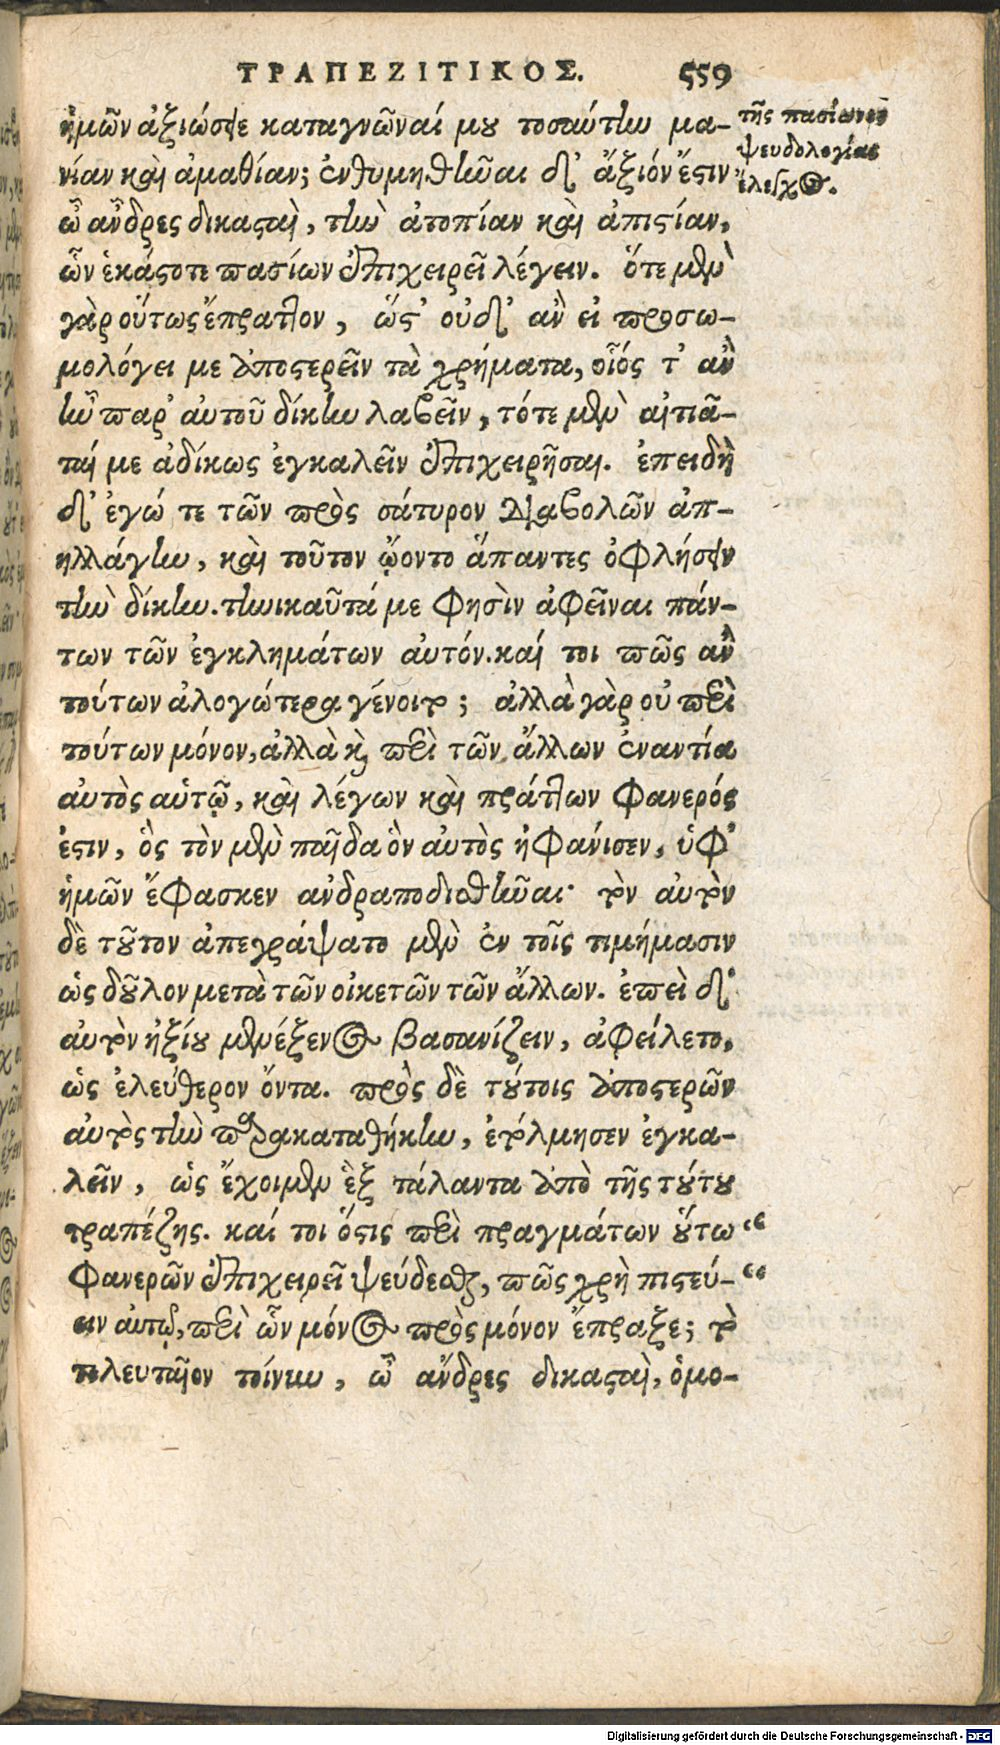 ΤΡΑΠΕΖΙΤΙΚΟΣ. 559
ἡμῶν ἀξιώσειε καταγνῶναί μου τοσαύτην μα-
νίαν καὶ ἀμαθίαν; ἐνθυμηθῆναι δ’ ἄξιόν ἔστιν
ὦ ἄνδρες δικασταὶ, τὴν ἀτοπίαν καὶ ἀπιστίαν,
ὧν ἑκάστοτε πασίων ἐπιχειρεῖ λέγειν. ὅτε μὲν
γὰρ οὕτως ἔπραττον, ὥστ’ οὐδ’ ἂν εἰ προσω-
μολόγει με ἀποστερεῖν τὰ χρήματα, οἷός τ’ ἂν
ἦν παρ’ αὐτοῦ δίκην λαβεῖν, τότε μὲν αἰτιᾶ-
ταί με ἀδίκως ἐγκαλεῖν ἐπιχειρῆσαι. ἐπειδὴ
δ’ ἐγώ τε τῶν πρὸς σάτυρον διαβολῶν ἀπ-
ηλλάγην, καὶ τοῦτον ᾤοντο ἅπαντες ὀφλήσειν
τὴν δίκην. τηνικαῦτά με φησὶν ἀφεῖναι πάν-
των τῶν ἐγκλημάτων αὐτόν. καί τοι πῶς ἂν
τούτων ἀλογώτερα γένοιτο; ἀλλὰ γὰρ οὐ περὶ
τούτων μόνον, ἀλλὰ καὶ περὶ τῶν ἄλλων ἐναντία
αὐτὸς αὑτῷ, καὶ λέγων καὶ πράττων φανερός
ἐστιν, ὃς τὸν μὲν παῖδα ὃν αὐτὸς ἠφάνισεν, ὑφ’
ἡμῶν ἔφασκεν ἀνδραποδισθῆναι· τὸν αὐτὸν
δὲ τοῦτον ἀπεγράψατο μὲν ἐν τοῖς τιμήμασιν
ὡς δοῦλον μετὰ τῶν οἰκετῶν τῶν ἄλλων. ἐπεὶ δ’
αὐτὸν ἠξίου μενέξενος βασανίζειν, ἀφείλετο,
ὡς ἐλεύθερον ὄντα. πρὸς δὲ τούτοις ἀποστερῶν
αὐτὸς τὴν παρακαταθήκην, ἐτόλμησεν ἐγκα-
λεῖν, ὡς ἔχοιμεν ἓξ τάλαντα ἀπὸ τῆς τούτου
τραπέζης. καί τοι ὅστις περὶ πραγμάτων οὕτω “
φανερῶν ἐπιχειρεῖ ψεύδεσθαι, πῶς χρὴ πιστεύ- “
ειν αὐτῷ, περὶ ὧν μόνος πρὸς μόνον ἔπραξε; τὸ
τελευταῖον τοίνυν, ὦ ἄνδρες δικασταὶ, ὁμο-
τῆς πασίωνος
ψευδολογίας
ἔλεγχος.
Digitalisierung gefördert durch die Deutsche Forschungsgemeinschaft - DFG